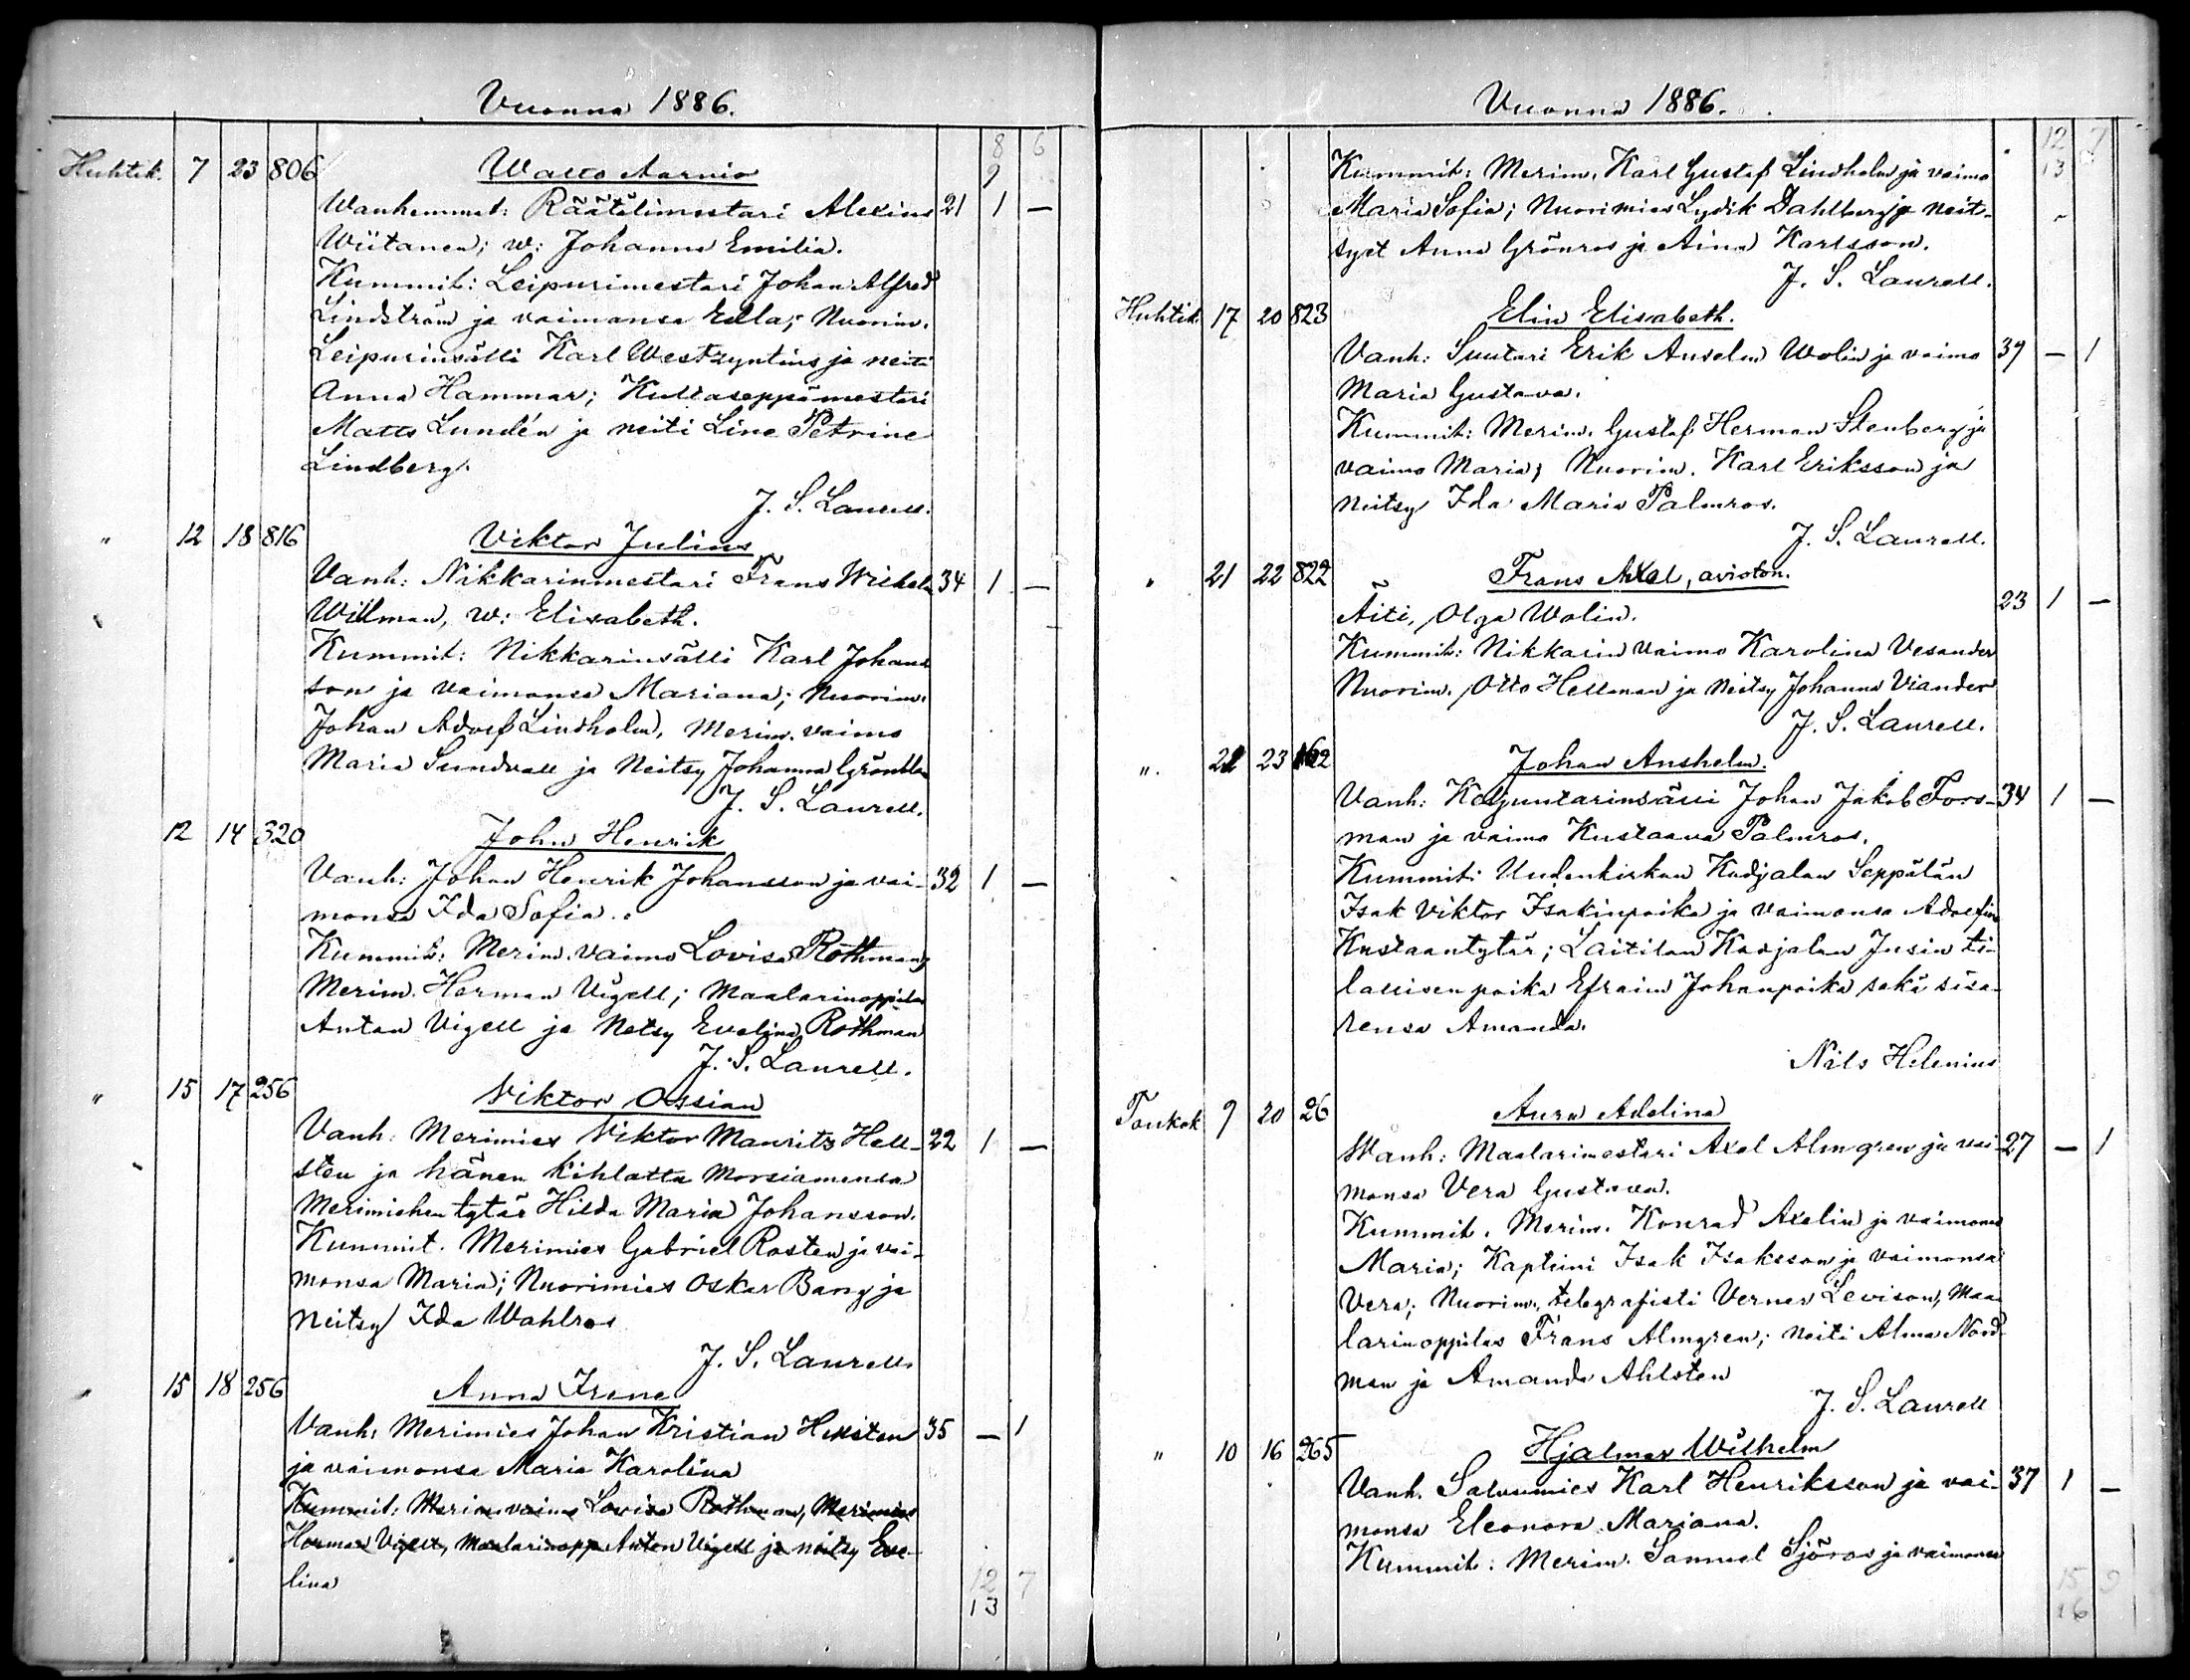 Vuonna 1886.
8 6
9
Huhtik. 7 23 806 Walto Aarnio
Wanhemmat: Räätälimestari Alexius 21 1 —
Wiitanen; w: Johanna Emilia.
Kummit: Leipurimestari Johan Alfred
Lindström ja vaimonsa Edla; Nuorim.
Leipurinsälli Karl Westzyntius ja neiti
Anna Hammar; Kultaseppämestari
Matts Lundén ja neiti Line Petrine
Lindberg.
J. S. Laurell.
" 12 18 816 Viktor Julius
Vanh: Nikkarinmestari Frans Wilhelm 34 1 —
Willman, w: Elisabeth.
Kummit: Nikkarinsälli Karl Johans
son ja vaimonsa Mariana; Nuorim.
Johan Adolf Lindholm, Merim. vaimo
Maria Sundvall ja Neitsy Johanna
J. S. Laurell.
12 14 320 John Henrik
Vanh: Johan Henrik Johansson ja vai- 32 1 —
monsa Ida Sofia.
Kummit: Merim. vaimo Lovisa Rothman;
Merim. Herman Vigell; Maalarinoppilas
Anton Vigell ja Netsy Evelina Rothman
J. S. Laurell.
" 15 17 256 Viktor Ossian
Vanh: Merimies Viktor Mauritz Hell- 22 1 —
sten ja hänen kihlattu Morsiamensa
Merimiehen tytär Hilda Maria Johansson.
Kummit. Merimies Gabriel Rosten ja vai-
monsa Maria; Nuorimies Oskar Bang ja
Neitsy Ida Wahlros
J. S. Laurell.
" 15 18 256 Anna Irene
Vanh: Merimies Johan Kristian Hellsten 35 — 1
ja vaimonsa Maria Karolina
Kummit: Merim vaimo Lovisa Rothman, Merimies
Herman Vigell, Maalarinopp Anton Vigell ja neitsy Eve-
lina
12 7
13
Vuonna 1886.
12 7
13
Kummit: Merim. Karl Gustaf Lindholm ja vaimo
Maria Sofia; Nuorimies Lydik Dahlberg ja Neit-
syt Anna Grönros ja Aina Karlsson.
J. S. Laurell.
Huhtik. 17 20 823 Elin Elisabeth.
Vanh: Suutari Erik Anselm Wolin ja vaimo 39 — 1
Maria Gustava.
Kummit: Merim. Gustaf Herman Stenberg ja
vaimo Maria; Nuorim. Karl Eriksson ja
Neitsy Ida Maria Palmros.
J. S. Laurell.
" 21 22 822 Frans Axel, avioton.
23 1 —
Äiti, Olga Wolin.
Kummit: Nikkarin vaimo Karolina Vesander
Nuorim. Otto Hellman ja Neitsy Johanna Viander
J. S. Laurell.
". 21 23 Johan Anshelm.
Vanh: Johan Jakob Fors- 34 1 —
man ja vaimo Kustaava Palmros.
Kummit: Uudenkirkon Kodjalan Seppälän
Isak Viktor Isakinpoika ja vaimonsa Adolfina
Kustaantytär; Laitilan Kodjalan Jusin ti-
lallisen poika Efraim Johanpoika sekä sisa-
rensa Amanda.
Nils Helenius
Toukok 9 20 26 Aura Adelina
Wanh: Maalarimestari Axel Almgren ja vai- 27 — 1
monsa Vera Gustava.
Kummit. Merim. Konrad Axelin ja vaimonsa
Maria; Kapteini Isak Isaksson ja vaimonsa
Vera; Nuorim. telegrafisti Verner Levison, Maa-
larinoppilas Frans Almgren; Neiti Alma Nord-
man ja Amanda Ahlsten
J. S. Laurell
" 10 16 265 Hjalmar Wilhelm
Vanh. Salvumies Karl Henriksson ja vai- 37 1 —
monsa Eleonora Mariana.
Kummit: Merim. Samuel Sjöros ja vaimonsa
15 9
16